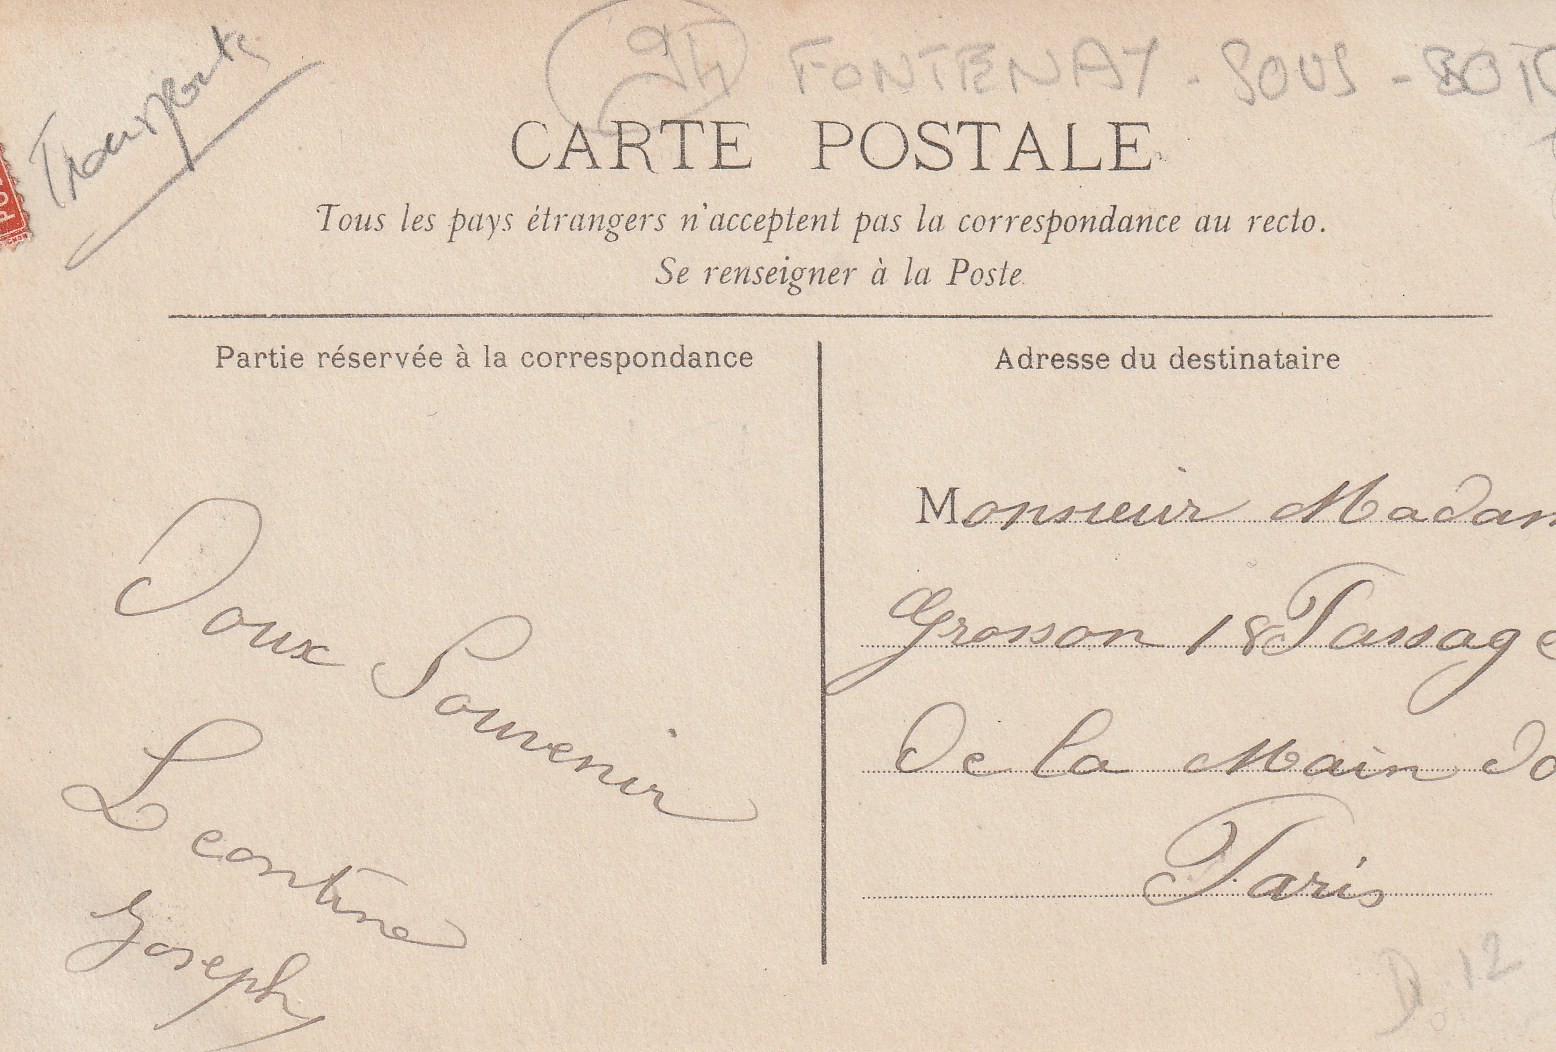 Transports
94 FONTENAY-SOUS-BOIS
CARTE POSTALE
Tous les pays étrangers n'acceptent pas la correspondance au recto.
Se renseigner à la Poste
Partie réservée à la correspondance
Adresse du destinataire
Doux Souvenir
Leontine
Joseph
Monsieur Madam
Grosson 18 Passage
De la Main do
Paris
D.12